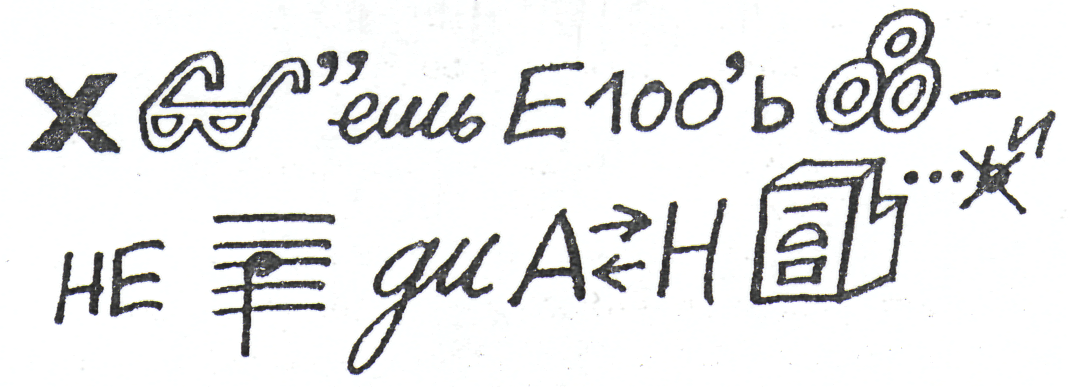 Х ” ешь Е 100 ’ Ь – И
НЕ ди А Н